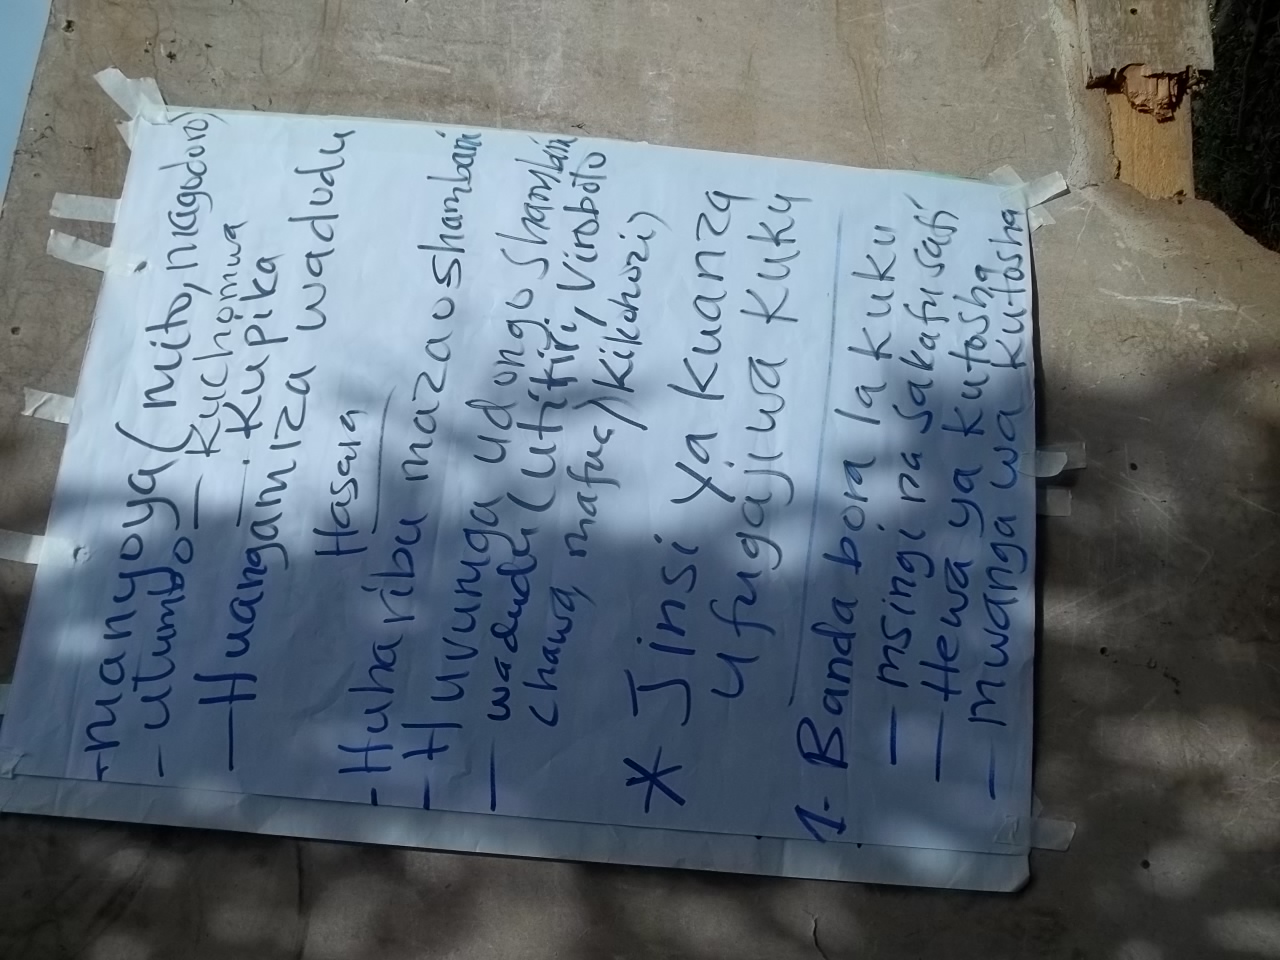 - manyoya (mito, magodoro)
- utumbo - kuchomwa
- Kupika
- Huangamiza wadudu
Hasara
- Huharibu mazao shambani
- Huvuruga udongo shambani
- wadudu (utitiri, Viroboto
chawa, mafua, Kikohozi)
* Jinsi ya kuanza
ufugajiwa kuku
1- Banda bora la kuku
- msingi na sakafu safi
- Hewa ya kutosha
- mwanga wa kutosha